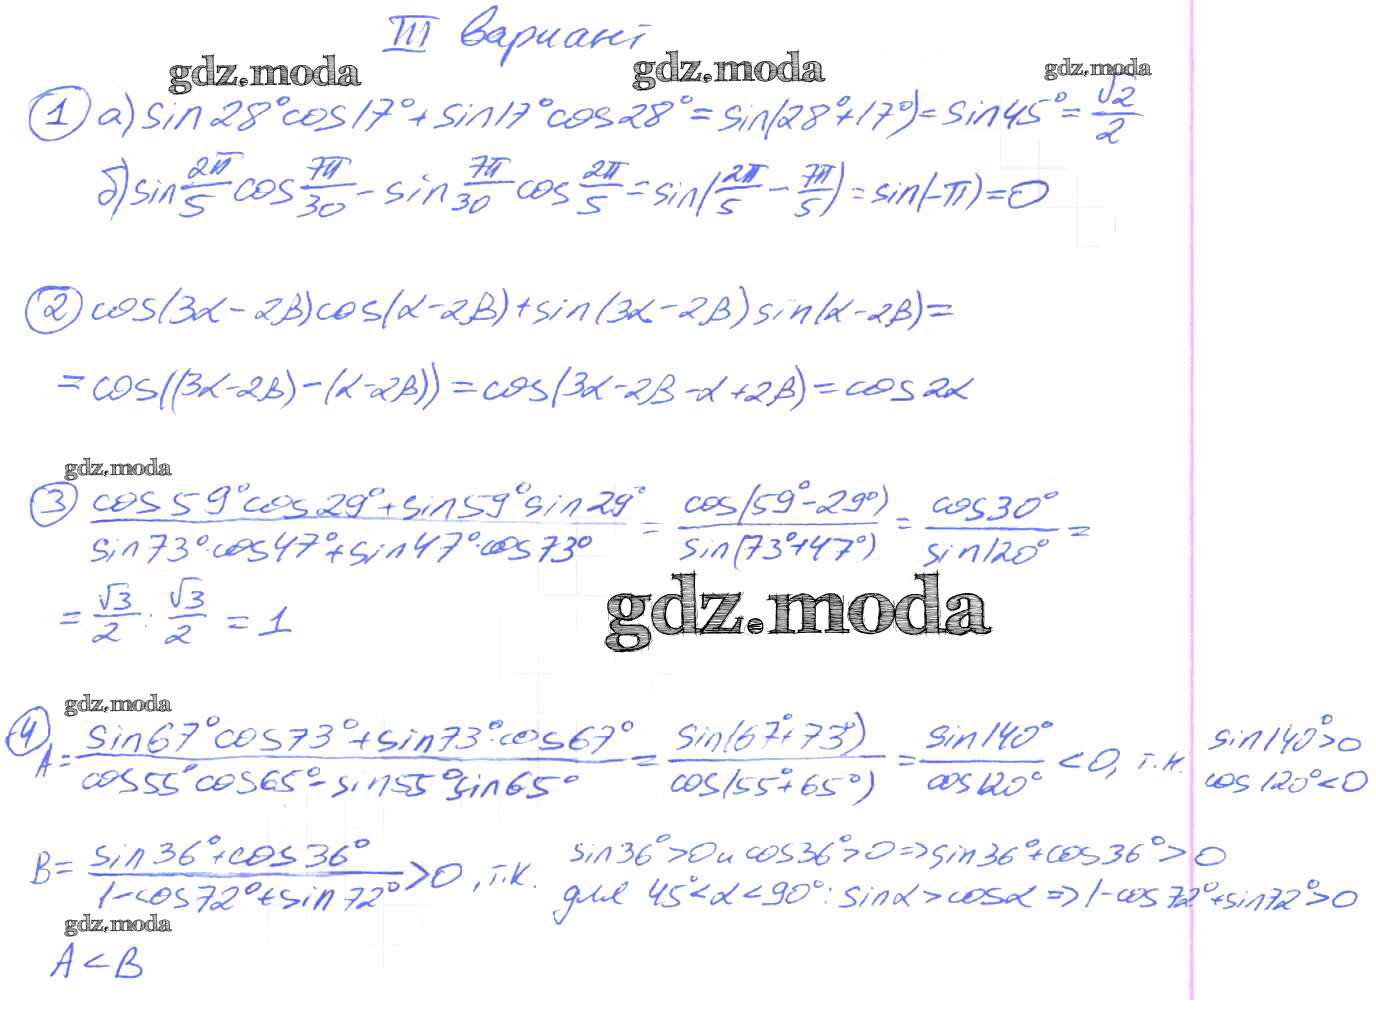 III вариант
gdz.moda gdz.moda gdz.moda
1 а) sin28°cos17°+sin17°cos28°=sin(28°+17°)=sin45°=√2/2
б) sin 2π/5 cos 7π/30 - sin 7π/30 cos 2π/5 = sin(2π/5 - 7π/5) = sin(-π)=0
2 cos(3α-2β)cos(α-2β)+sin(3α-2β)sin(α-2β)=
=cos((3α-2β)-(α-2β))=cos(3α-2β-α+2β)=cos2α
gdz.moda
3 (cos59°cos29°+sin59°sin29°)/(sin73°·cos47°+sin47°·cos73°) = cos(59°-29°)/sin(73°+47°) = cos30°/sin120° =
= √3/2 : √3/2 = 1
gdz.moda
gdz.moda
4 A= (sin67°cos73°+sin73°·cos67°)/(cos55°cos65°-sin55°sin65°) = sin(67°+73°)/cos(55°+65°) = sin140°/cos120° <0, т.к. sin140°>0 cos120°<0
B= (sin36°+cos36°)/(1-cos72°+sin72°) >0, т.к. sin36°>0 и cos36°>0=>sin36°+cos36°>0
для 45°<α<90°: sinα>cosα=>1-cos72°+sin72°>0
gdz.moda
A<B